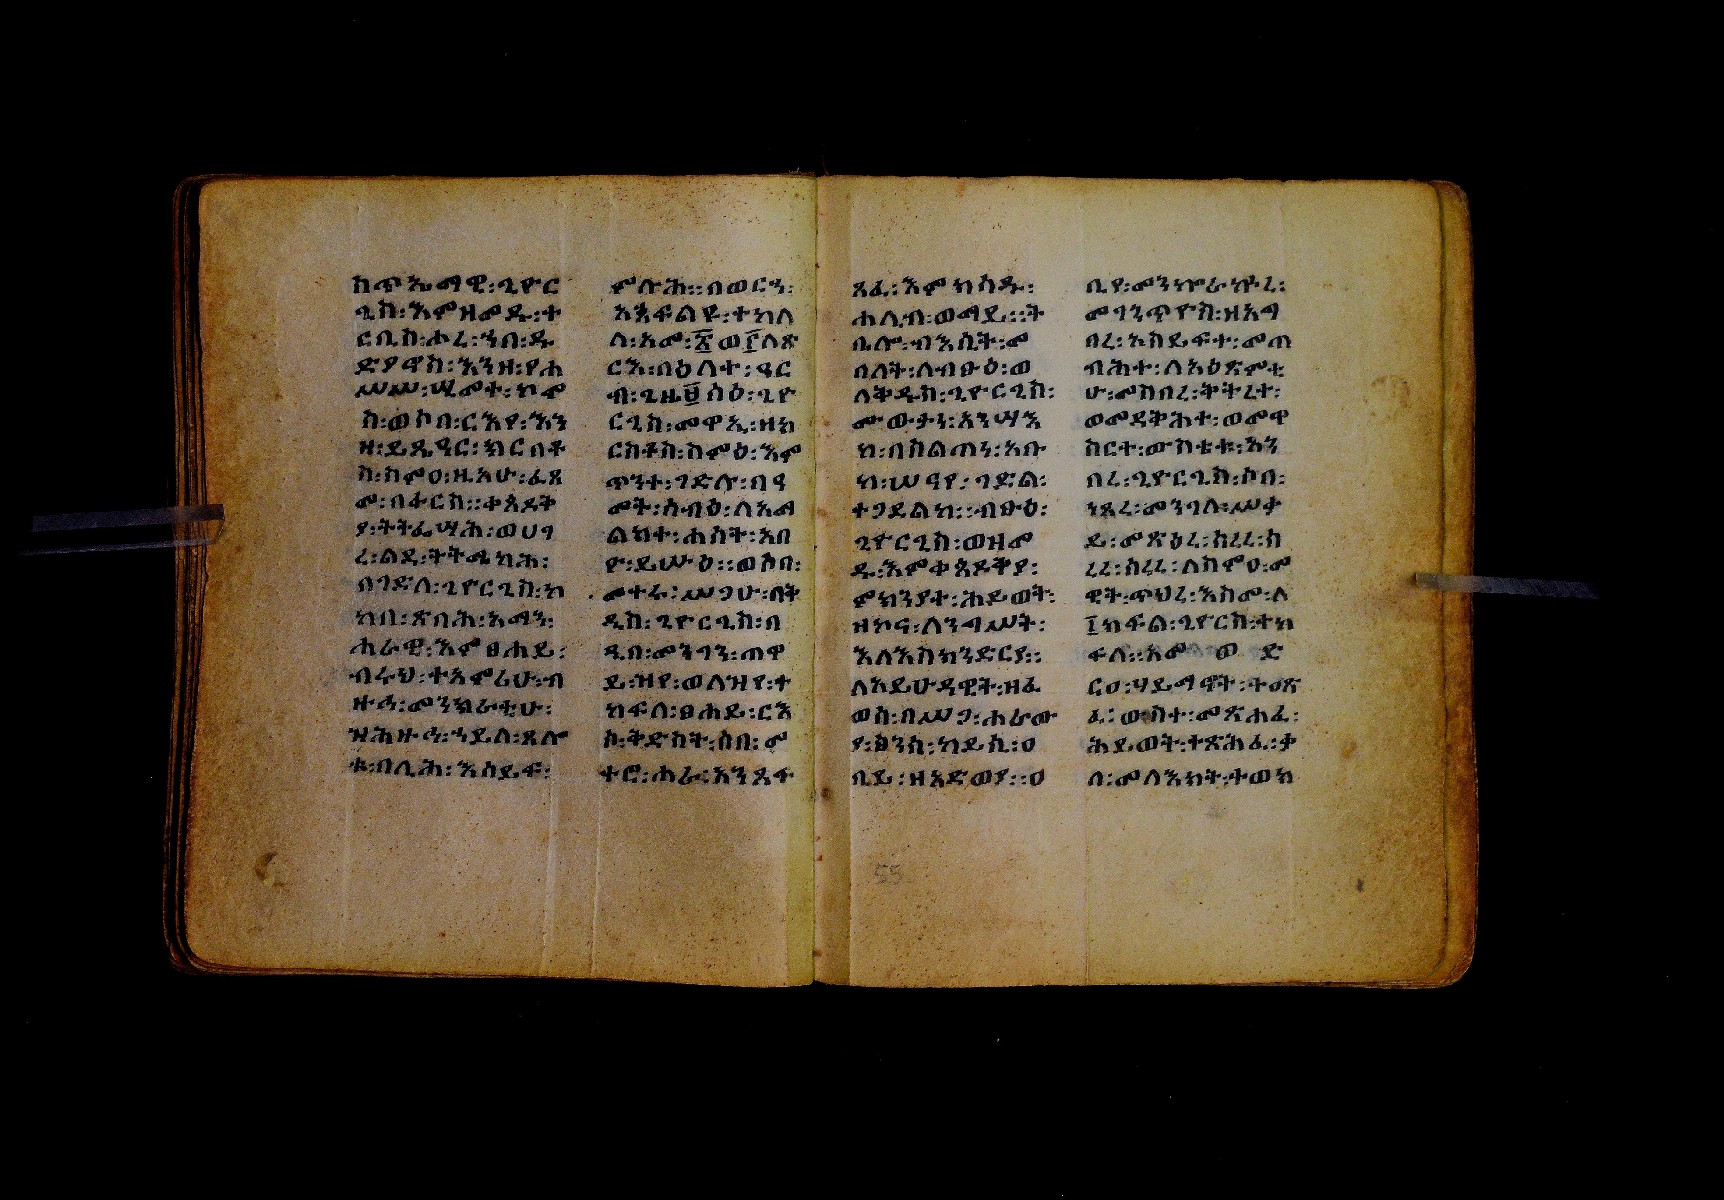 ክጥኤማዊ፡ጊዮር
ጊስ፡እምዘመዱ፡ተ
ርቢከ፡ሖረ፡ኀበ፡ዱ
ድያኖስ፡እንዘ፡የሐ
ሠሥ፡ሢመተ፡ከመ
ከ፡ወሶበ፡ርእየ፡እን
ዘ፡ይጼዓር፡ክርስቶ
ስ፡ስምዐ፡ዚአሁ፡ፈጸ
መ፡በፋርስ።ቀጸዳት
ያ፡ትትፌሣሕ፡ወሀገ
ረ፡ልዳ፡ትትመካሕ፡
በገድለ፡ጊዮርጊስ፡ከ
ዊከበ፡ጽባሕ፡አማን፡
ሐራዊ፡እምፀሐይ፡
ብሩህ፡ተአምሪሁ፡ብ
ዙኅ፡መንክራቲሁ፡
ዝሕዙሓ፡ኀይለ፡ጸሎ
ቱ፡በሊሕ፡እሰይፍ፡
ምሉሕ።በወርኅ፡
አጺፍልዩ፡ተክለ
ለ፡አመ፡፳ወ፫ለጽ
ርአ፡በዕለተ፡ዓር
ብ፡ጊዜ፱ሰዕ፡ጊዮ
ርጊስ፡መዋኢ፡ዘክ
ርስቶስ፡ስምዕ፡እም
ጥንተ፡ገድሉ፡በዓ
መት፡ስብዕ፡ለአማ
ልክተ፡ሐሰት፡አበ
የ፡ይሡዕ።ወሶበ፡
መተሩ፡ሥጋሁ፡በት
ዲስ፡ጊዮርጊስ፡በ
ዲበ፡መንገን፡ጠዋ
ይ፡ዝየ፡ወለዝየ፡ተ
ከፍለ፡ፀሐይ፡ርእ
ሰ፡ቅድስት፡ሶበ፡ም
ተሮ፡ሐራ፡አንጸፋ
ጸፈ፡እምክሳዱ፡
ሐሊብ፡ወማይ።ት
ቤሎ፡ብእሲት፡መ
በለት፡ለብፁዕ፡ወ
ለቅዱስ፡ጊዮርጊስ፡
ሙውታነ፡አንሣእ
ከ፡በስልጣነ፡አቡ
ከ፡ሠዓየ፡ገድል፡
ተጋደልከ።ብፁዕ፡
ጊዮርጊስ፡ወዘመ
ዱ፡እምቀጰዶቅያ፡
ምክንያተ፡ሕይወት፡
ዘኮና፡ለንግሥት፡
እለእስክንድርያ።
ለአይሁዳዊት፡ዘፈ
ወሰ፡በሥጋ፡ሐራው
ያ፡ፅንስ፡ካይሲ፡ዐ
ቢይ፡ዘአድወያ።ዐ
ቢየ፡መንኰራኵረ፡
መገንጥዮስ፡ዘአግ
በረ፡አከይፍተ፡መጠ
ብሕተ፡ለአዕጽምቲ
ሁ፡መከበረ፡ትትረተ፡
ወመዳቅሕተ፡ወመዋ
ስርተ፡ውስቴቱ፡አን
በረ፡ጊዮርጊስ፡ሶበ፡
ነጸረ፡መንገለ፡ሥቃ
ይ፡መጽዕረ፡ከረረ፡ከ
ረረ፡ከረረ፡ለስምዐ፡መ
ዊት፡ጥህረ፡እስመ፡ለ
፲ክፍል፡ጊዮርስ፡ተከ
ፍለ።አመ ወ ድ
ርዐ፡ሃይማኖት፡ተዐጽ
ፈ፡ውስተ፡መጽሐፈ፡
ሕይወት፡ተጽሕፈ፡ቃ
ለ፡መለእክት፡ተወክ
55